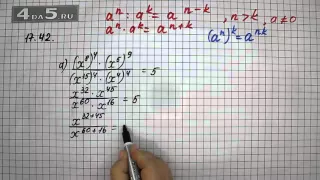 4DA5.RU
aⁿ : aᵏ = aⁿ⁻ᵏ, n>k, a≠0
aⁿ · aᵏ = aⁿ⁺ᵏ (aⁿ)ᵏ = aⁿᵏ
17.42.
a) (x⁸)⁴ · (x⁵)⁹ / (x¹⁵)⁴ · (x⁴)⁴ = 5
x³² · x⁴⁵ / x⁶⁰ · x¹⁶ = 5
x³²⁺⁴⁵ / x⁶⁰⁺¹⁶ =